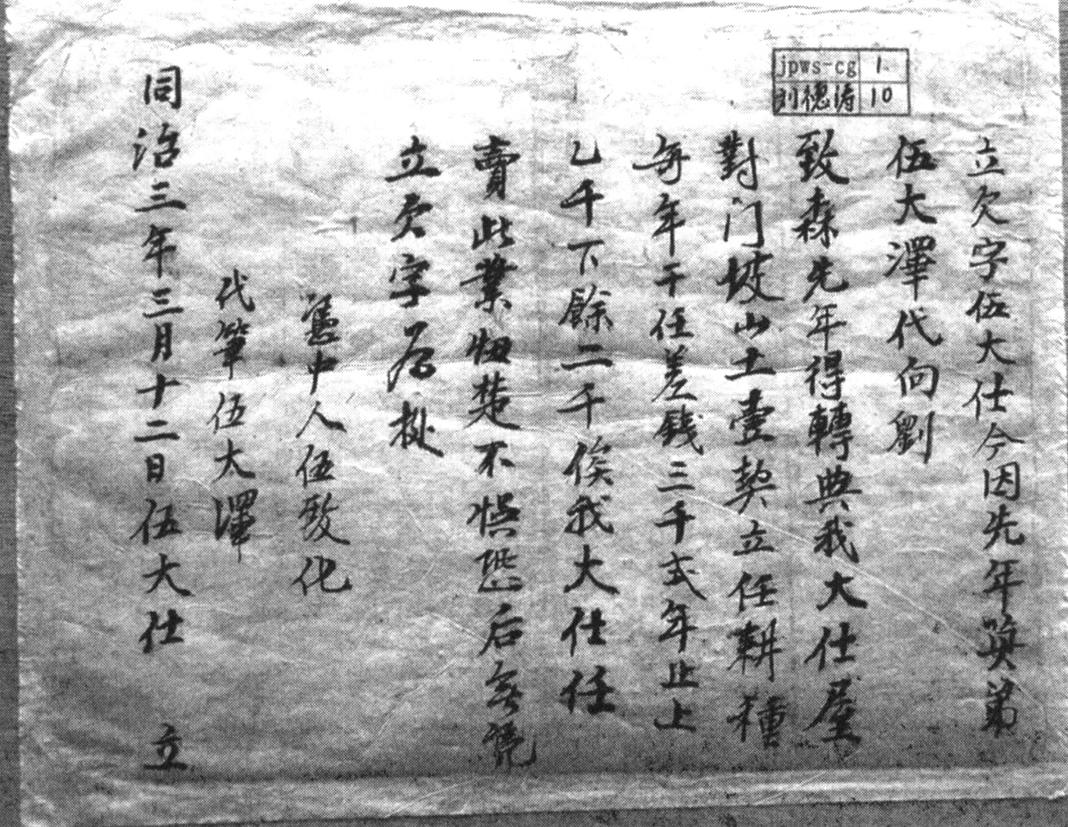 立欠字伍大仕今因先年喚弟
伍大澤代向劉
致森先年得轉典我大仕屋
對门坡山土壹契立任耕種
每年干任差錢三千弍年止上
乙千下餘二千俟我大仕任
賣此業怞楚不悮恐后無凭
立欠字為挋
憑中人伍致化
代筆伍大澤
同治三年三月十二日伍大仕 立
jpws-cg 1
刘德涛 10